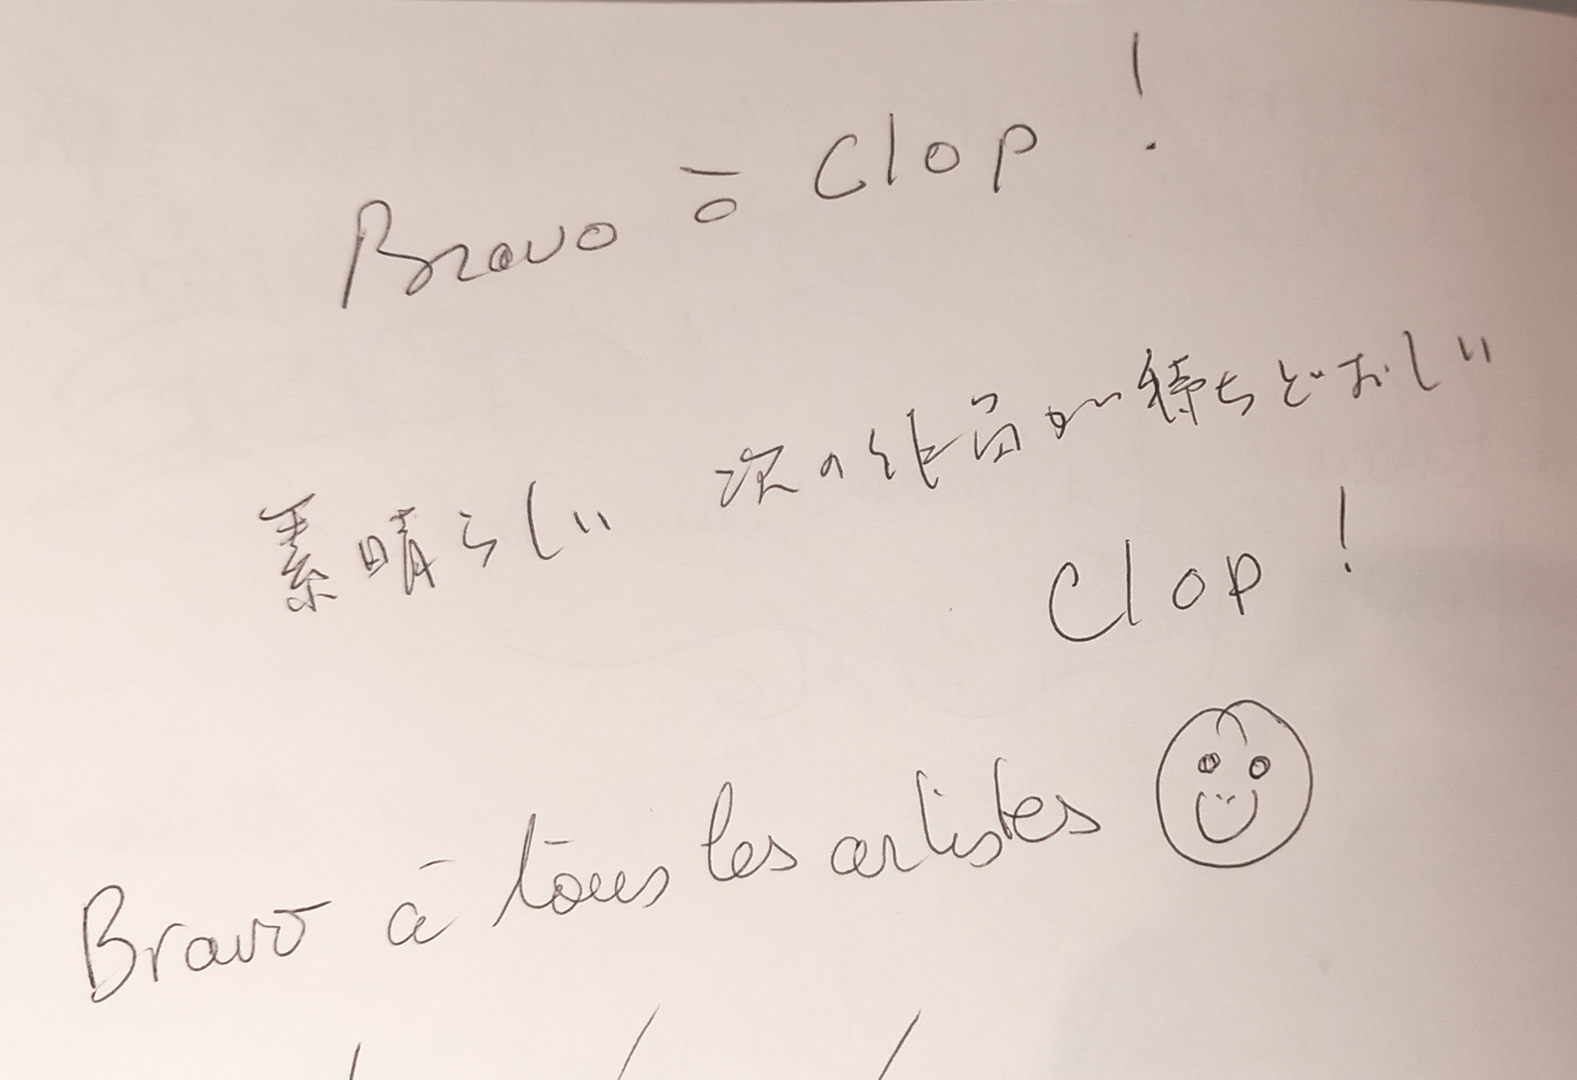 Bravo à Clop !
素晴らしい 次の作品が待ちどおしい
Clop !
Bravo à tous les artistes